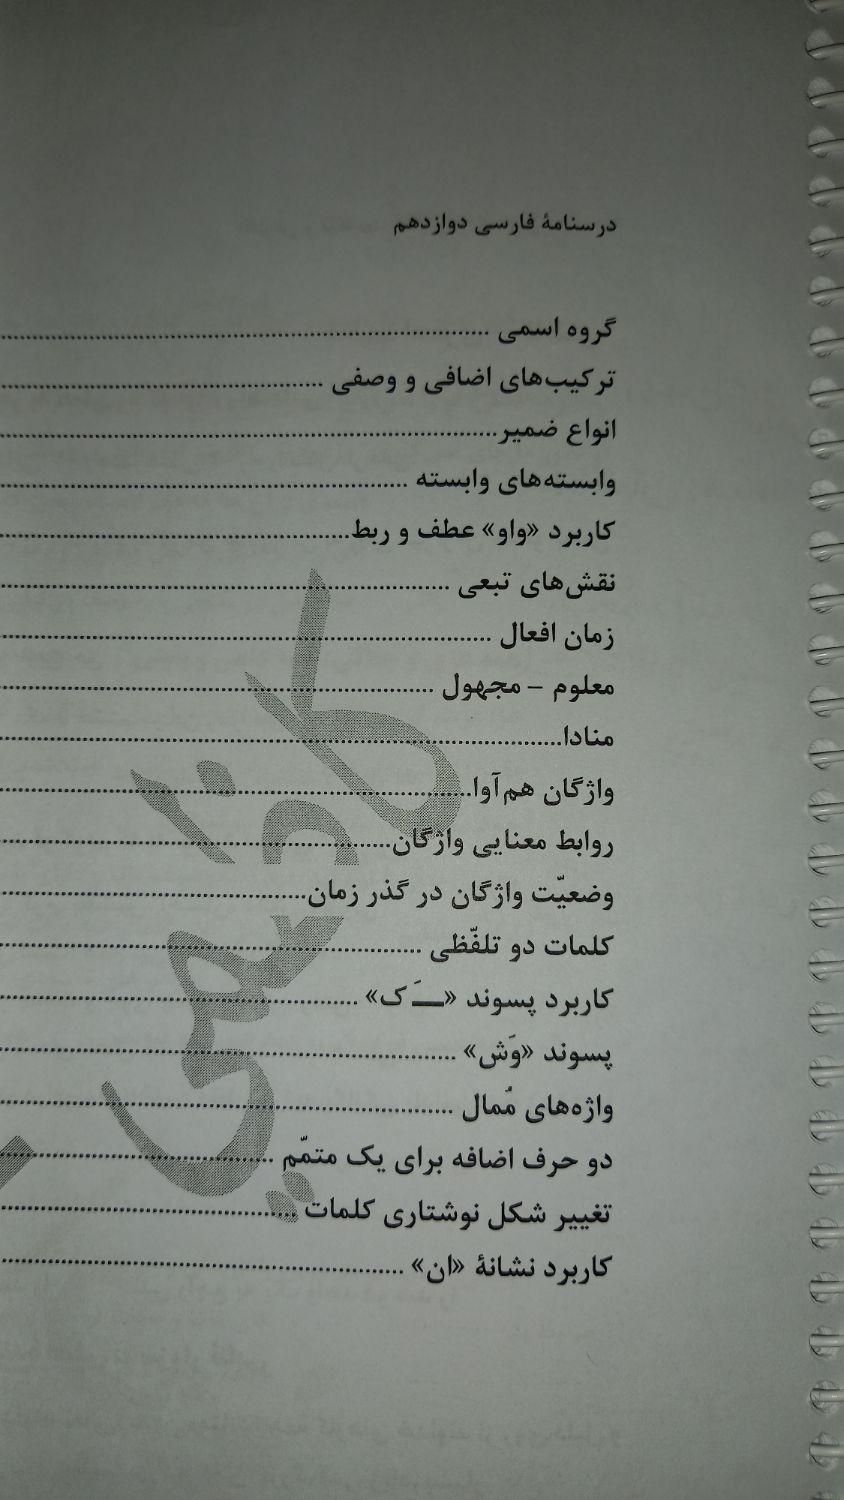 درسنامهٔ فارسی دوازدهم
گروه اسمی
ترکیب‌های اضافی و وصفی
انواع ضمیر
وابسته‌های وابسته
کاربرد «واو» عطف و ربط
نقش‌های تبعی
زمان افعال
معلوم – مجهول
منادا
واژگان هم‌آوا
روابط معنایی واژگان
وضعیّت واژگان در گذر زمان
کلمات دو تلفّظی
کاربرد پسوند «ـَ ک»
پسوند «وَش»
واژه‌های مُمال
دو حرف اضافه برای یک متمّم
تغییر شکل نوشتاری کلمات
کاربرد نشانهٔ «ان»
کاظمی